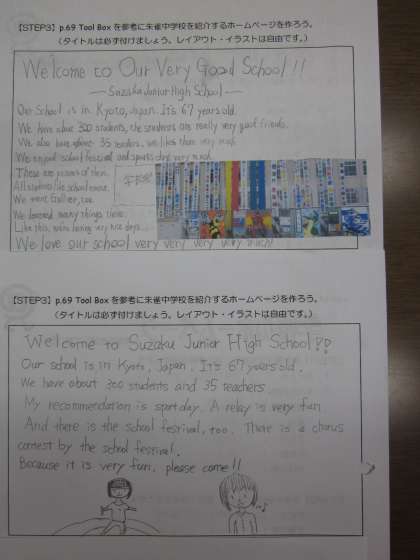 【STEP3】p.69 Tool Box を参考に朱雀中学校を紹介するホームページを作ろう。
（タイトルは必ず付けましょう。レイアウト・イラストは自由です。）
Welcome to Our Very Good School!!
—Suzaku Junior High School—
Our School is in Kyoto, Japan. It's 67 years old.
We have about 300 students, the students are really very good friends.
We also have about 35 teachers, we likes them very much.
We enjoy school festival and sports day very much.
These are pictures of them.
All students like school
We went
We learned many things there.
Like this, we're having very nice days.
We love our school very very very very much!
【STEP3】p.69 Tool Box を参考に朱雀中学校を紹介するホームページを作ろう。
（タイトルは必ず付けましょう。レイアウト・イラストは自由です。）
Welcome to Suzaku Junior High School!!
Our school is in Kyoto, Japan. It's 67 years old.
We have about 300 students and 35 teachers.
My recommendation is sport day. A relay is very fun
And there is the school festival, too. There is a chorus
contest by the school festival.
Because it is very fun, please come!!